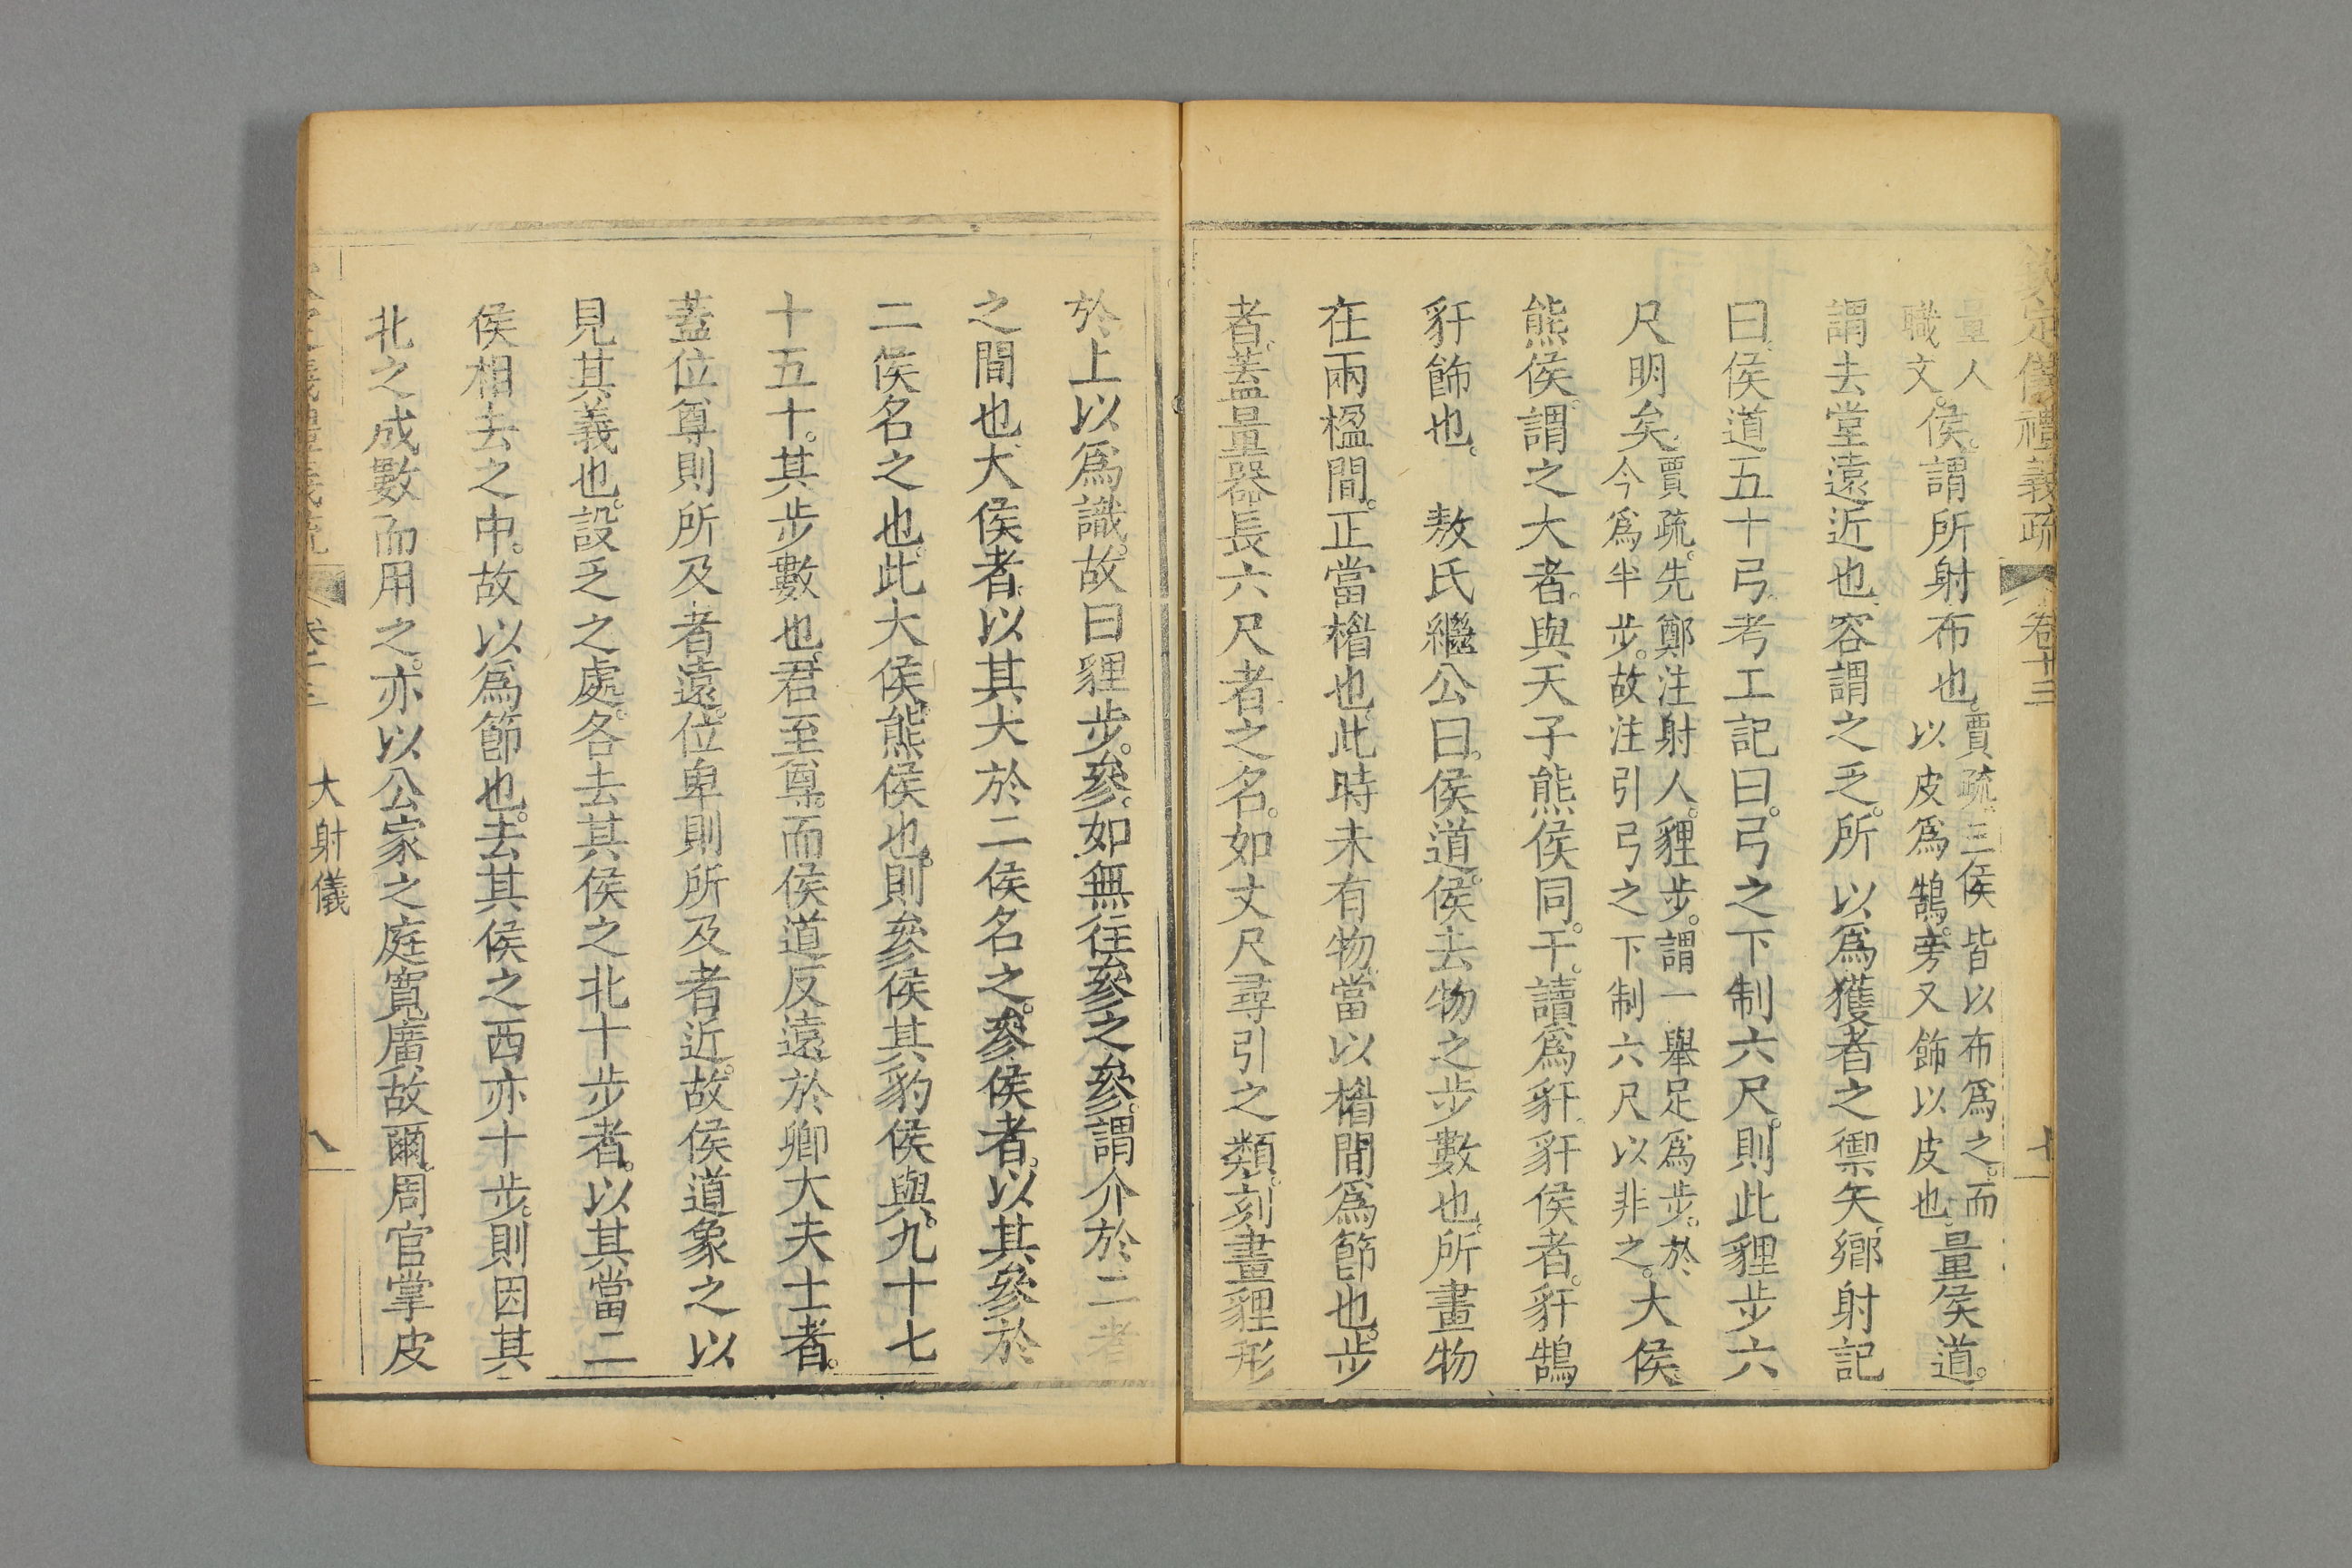 欽定儀禮義疏 卷十三
量人職文侯謂所射布也賈疏三侯皆以布爲之而以皮爲鵠旁又飾以皮也量侯道
謂去堂遠近也容謂之乏所以爲獲者之禦矢鄉射記
曰侯道五十弓考工記曰弓之下制六尺則此貍步六
尺明矣賈疏先鄭注射人貍步謂一舉足爲步於今爲半步故注引弓之下制六尺以非之大侯
熊侯謂之大者與天子熊侯同干讀爲豻豻侯者豻鵠
豻飾也 敖氏繼公曰侯道侯去物之步數也所畫物
在兩楹間正當楅也此時未有物當以楅間爲節也步
者蓋量器長六尺者之名如丈尺尋引之類刻畫貍形
於上以爲識故曰貍步參如無往參之參謂介於二者
之間也大侯者以其大於二侯名之參侯者以其參於
二侯名之也此大侯熊侯也則參侯其豹侯與九十七
十五十其步數也君至尊而侯道反遠於卿大夫士者
蓋位尊則所及者遠位卑則所及者近故侯道象之以
見其義也設乏之處各去其侯之北十步者以其當二
侯相去之中故以爲節也去其侯之西亦十步則因其
北之成數而用之亦以公家之庭寬廣故爾周官掌皮
大射儀 八